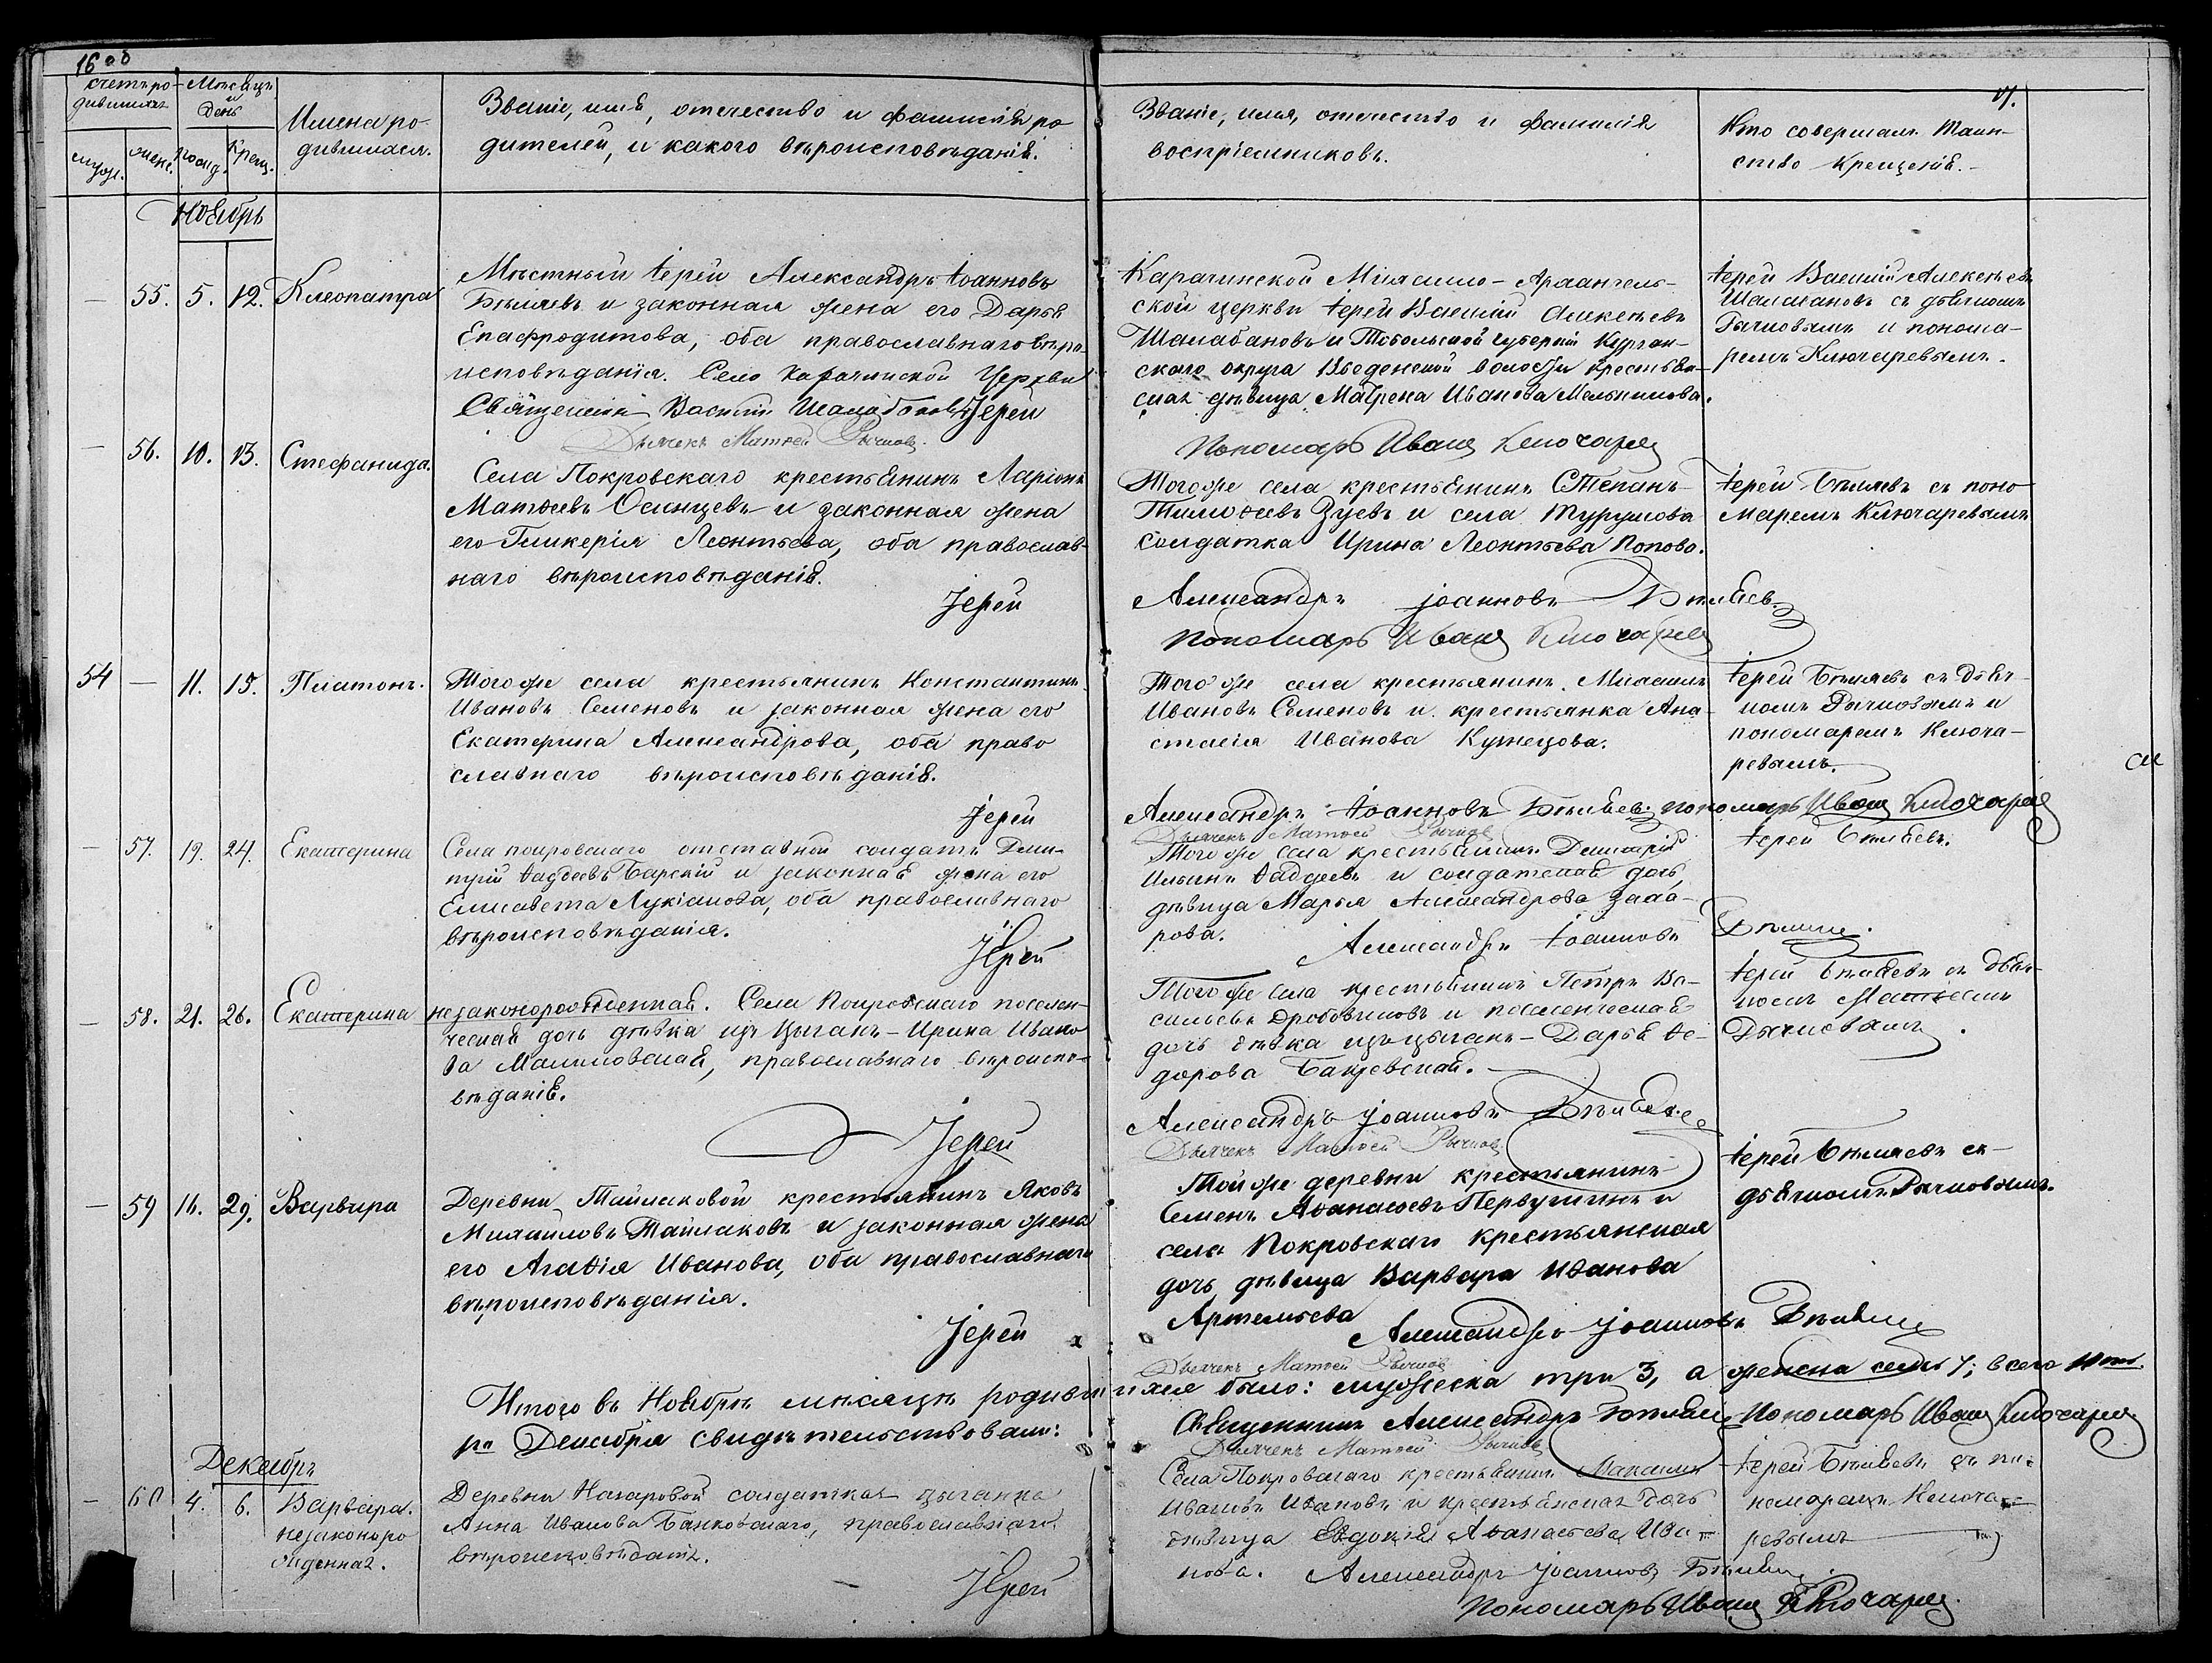 16 об
17.
Счетъ ро-
дившихся
Мѣсяцъ
и
День
муж.
женс.
рожд.
Крещ.
Имена ро-
дившихся.
Званіе, имя, отечество и фамилія ро-
дителей, и какого вѣроисповѣданія.
Званіе, имя, отечество и фамилія
воспріемниковъ.
Кто совершалъ Таин-
ство Крещенія.
Ноябрь
— 55. 5. 12. Клеопатра
Мѣстный Іерей Александръ Іоанновъ
Бѣляевъ и законная жена его Дарья
Епафродитова, оба православнаго вѣро-
исповѣданія. Село Карачинской Церкви
Священникъ Василій Шалабановъ Іерей
Дьячекъ Матѳей Рычковъ.
Карачинской Михаило-Архангель-
ской церкви Іерей Василій Алексѣевъ
Шалабановъ и Тобольской губерніи Курган-
скаго округа Введенской волости крестьян-
ская дѣвица Матрена Иванова Мельникова.
Пономарь Иванъ Ключаревъ
Іерей Василій Алексѣевъ
Шалабановъ съ дьячкомъ
Рычковымъ и понома-
ремъ Ключаревымъ.
— 56. 10. 13. Стефанида.
Села Покровскаго крестьянинъ Ларіонъ
Матѳеевъ Осинцевъ и законная жена
его Гликерія Леонтьева, оба православ-
наго вѣроисповѣданія.
Іерей
Тогоже села крестьянинъ Степанъ
Тимоѳеевъ Зуевъ и села Турушова
солдатка Ирина Леонтьева Попова.
Александръ Іоанновъ Бѣляевъ
Пономарь Иванъ Ключаревъ
Іерей Бѣляевъ съ поно
маремъ Ключаревымъ
54 — 11. 15. Платонъ.
Того же села крестьянинъ Константинъ
Ивановъ Семеновъ и законная жена его
Екатерина Александрова, оба право
славнаго вѣроисповѣданія.
Іерей
Того же села крестьянинъ Михаилъ
Ивановъ Семеновъ и крестьянка Ана-
стасія Иванова Кузнецова.
Александръ Іоанновъ Бѣляевъ. пономарь Иванъ Ключаревъ
Дьячекъ Матѳей Рычковъ
Іерей Бѣляевъ съ дьяч-
комъ Рычковымъ и
пономаремъ Ключа-
ревымъ.
— 57. 19. 24. Екатерина
Села покровскаго отставной солдатъ Дми-
трій Ѳадѣевъ Барскій и законная жена его
Елисавета Лукіанова, оба православнаго
вѣроисповѣданія.
Іерей
Того же села крестьянинъ Димитрій
Ильинъ Ѳадѣевъ и солдатская дочь,
дѣвица Марья Александрова Заха-
рова.
Александръ Іоанновъ Бѣляевъ.
Іерей Бѣляевъ.
— 58. 21. 26. Екатерина незаконорожденная. Села Покровскаго поселен-
ческая дочь дѣвка изъ Цыганъ - Ирина Ивано
ва Малиновская, православнаго вѣроиспо-
вѣданія.
Іерей
Того же села крестьянинъ Петръ Ва-
сильевъ Дробовиковъ и поселенческая
дочь дѣвка изъ цыганъ - Дарья Ѳе-
дорова Банжевская.
Александръ Іоанновъ Бѣляевъ
Дьячекъ Матѳей Рычковъ
Іерей Бѣляевъ съ дьяч-
комъ Матѳеемъ
Рычковымъ.
— 59 16. 29. Варвара
Деревни Тайлаковой крестьянинъ Яковъ
Михайловъ Тайлаковъ и законная жена
его Агаѳія Иванова, оба православнаго
вѣроисповѣданія.
Іерей
Той же деревни крестьянинъ
Семенъ Аѳанасьевъ Первушинъ и
села Покровскаго крестьянская
дочь, дѣвица Варвара Иванова
Артемьева
Александръ Іоанновъ Бѣляевъ
Дьячекъ Матѳей Рычковъ
Іерей Бѣляевъ съ
дьячкомъ Рычковымъ.
Итого въ Ноябрѣ мѣсяцѣ родившихся было: мужеска три 3, а женска семь 7; всего 10ть.
Декабря свидѣтельствовали:
Священникъ Александръ Бѣляевъ Пономарь Иванъ Ключаревъ
Дьячекъ Матѳей Рычковъ
Декабрь
— 60 4. 6. Варвара.
незаконоро
жденная.
Деревни Назаровой солдатская цыганка
Анна Иванова Банковскаго, православнаго
вѣроисповѣданія.
Іерей
Села Покровскаго крестьянинъ Максимъ
Ивановъ Ивановъ и крестьянская дочь
дѣвица Евдокія Аѳанасьева Ива-
нова. Александръ Іоанновъ Бѣляевъ.
Пономарь Иванъ Ключаревъ.
Іерей Бѣляевъ съ по-
номаремъ Ключа-
ревымъ